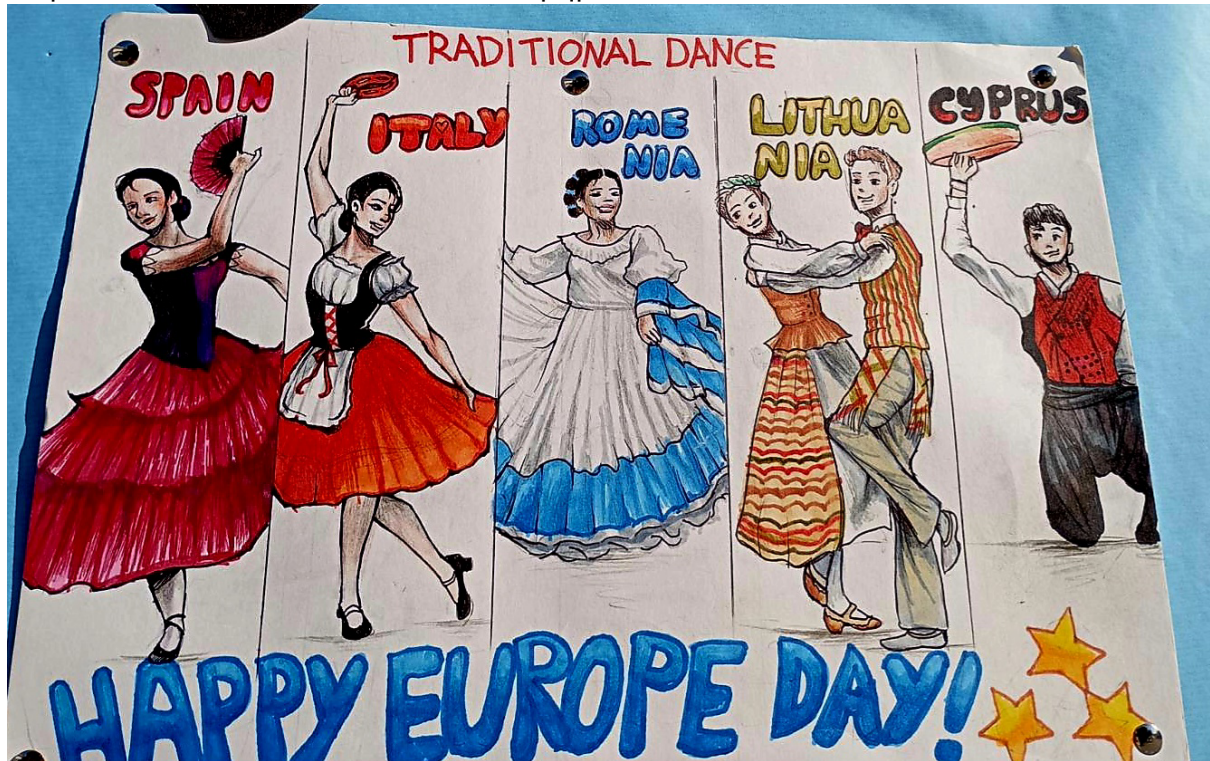 TRADITIONAL DANCE
SPAIN
ITALY
ROME
NIA
LITHUA
NIA
CYPRUS
HAPPY EUROPE DAY!